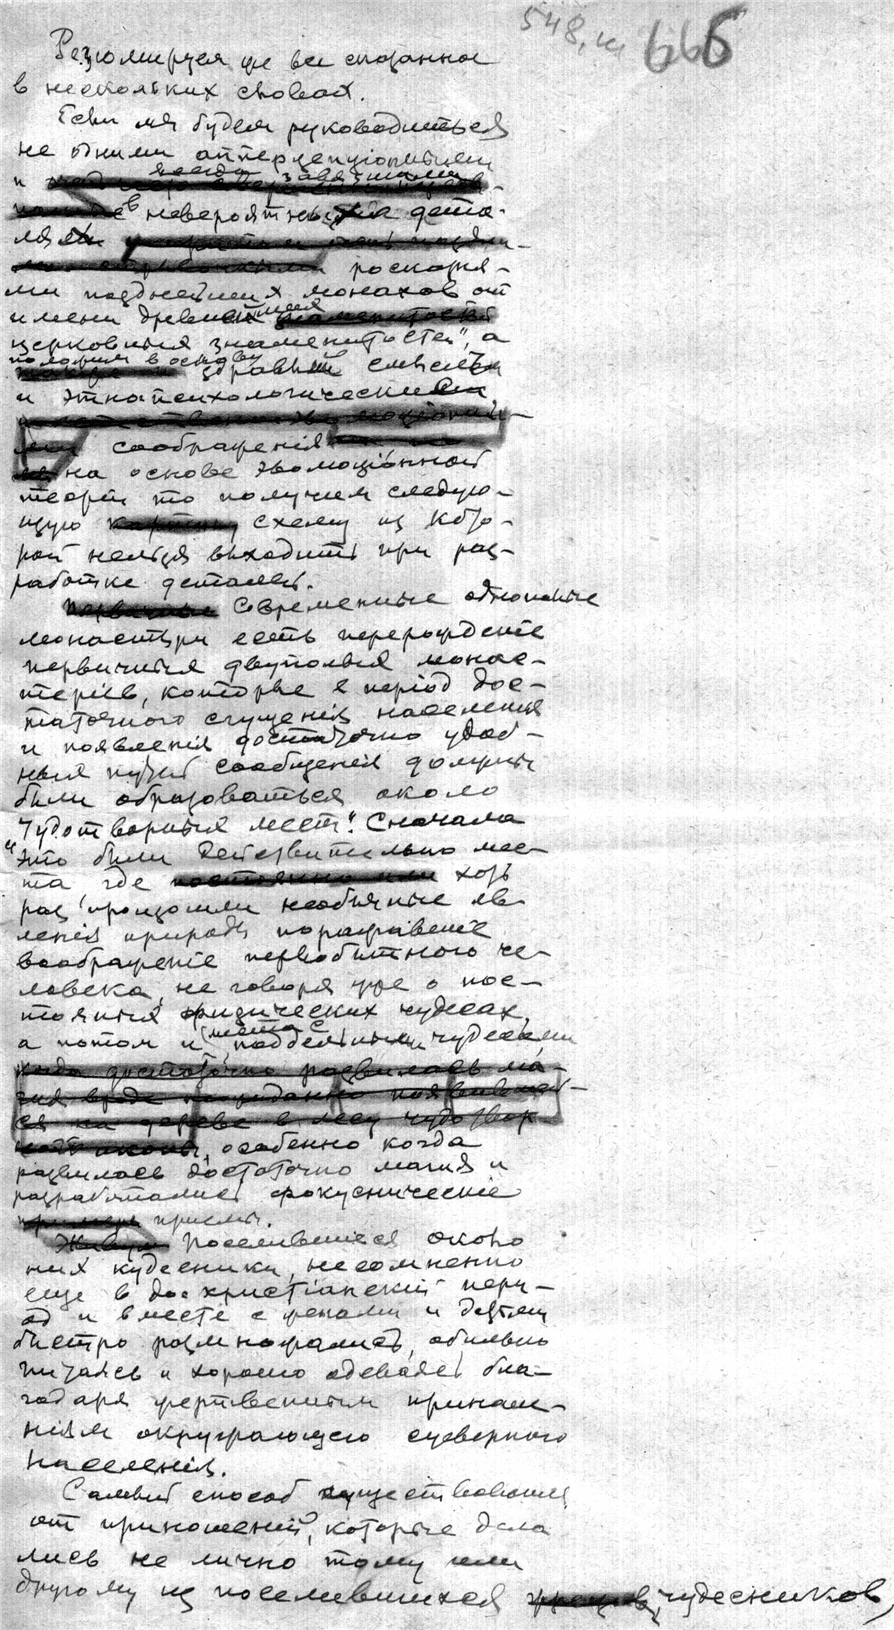 548, III 666
Резюмируем же все сказанное
в нескольких словах.
Если мы будем руководиться
не одними апперцепціонными
и всегда завязшими
в невероятных деталя-
лях
росказня-
ми позднейших монахов от
имени древнейших
церковных знаменитостей", а
положим в основу здравый смысл
и этнопсихологические
соображенія
на основе эволюціонной
теоріи то получим следую-
щую схему из кото-
рой нельзя выходить при раз-
работке деталей.
Современные однополые
монастыри есть перерожденіе
первичных двуполых монас-
теріев, которые в період дос-
таточного сгущенія населенія
и появленія достаточно удоб-
ных путей сообщенія должны
были образоваться около
"чудотворных мест". Сначала
это были действительно мес-
та где хоть
раз произошли необычные яв-
ленія природы поразившіе
воображеніе первобытного че-
ловека, не говоря уже о пос-
тоянных физических чудесах,
а потом и места с поддельными чудесами
особенно когда
развилась достаточно магія и
разработались фокусническіе
приемы.
Поселившіеся около
них кудесники, несомненно
еще в дохристіанскій пери-
од и вместе с женами и детьми
быстро размножались, обильно
питаясь и хорошо одеваясь бла-
годаря жертвенным приноше-
ніям окружающего суеверного
населенія.
Самый способ существованія
от приношеній, которые дела
лись не лично тому или
другому из поселившихся чудесников,